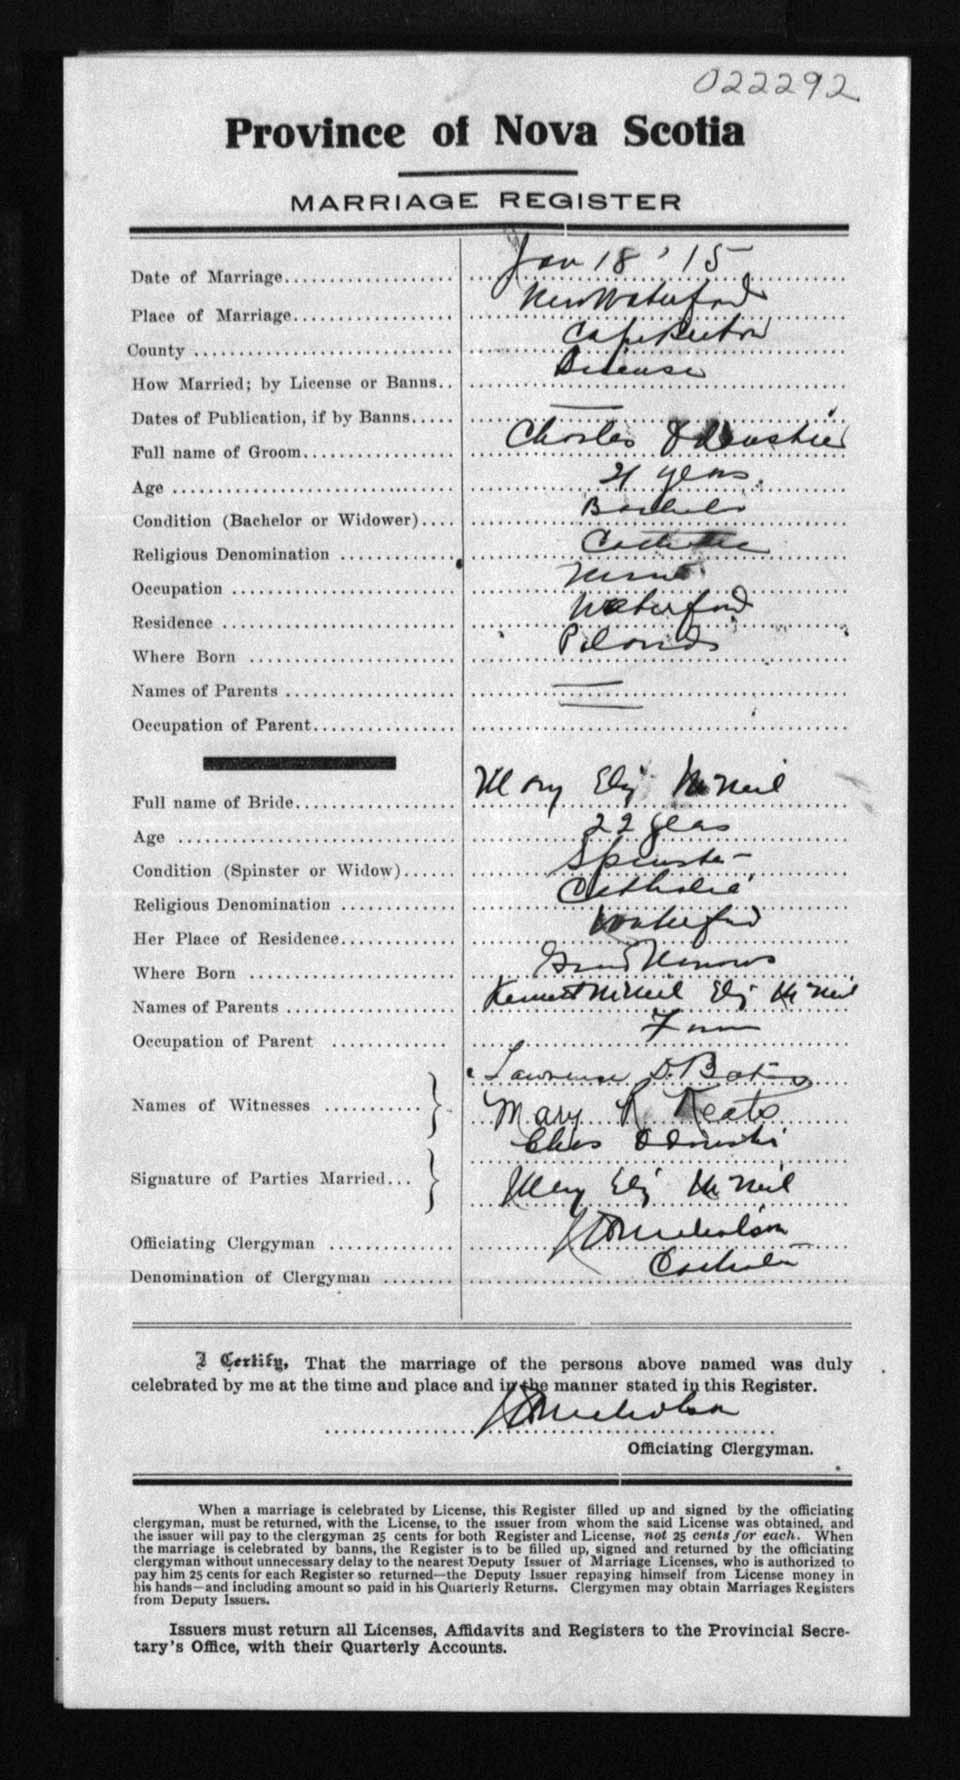 022292
Province of Nova Scotia
MARRIAGE REGISTER
Date of Marriage Jan 18 ' 15
Place of Marriage New Waterford
County Cape Breton
How Married; by License or Banns License
Dates of Publication, if by Banns —
Full name of Groom Charles
Age 21 years
Condition (Bachelor or Widower) Bachelor
Religious Denomination Catholic
Occupation Miner
Residence Waterford
Where Born Poland
Names of Parents —
Occupation of Parent —
Full name of Bride Mary Eliz McNeil
Age 22 years
Condition (Spinster or Widow) Spinster
Religious Denomination Catholic
Her Place of Residence Waterford
Where Born Grand Narrows
Names of Parents Kenneth McNeil Eliz McNeil
Occupation of Parent Farmer
Names of Witnesses Lawrence D.
Mary Keats
Signature of Parties Married Chas
Mary Eliz McNeil
Officiating Clergyman Nicholson
Denomination of Clergyman Catholic
I Certify, That the marriage of the persons above named was duly
celebrated by me at the time and place and in the manner stated in this Register.
Nicholson
Officiating Clergyman.
When a marriage is celebrated by License, this Register filled up and signed by the officiating
clergyman, must be returned, with the License, to the issuer from whom the said License was obtained, and
the issuer will pay to the clergyman 25 cents for both Register and License, not 25 cents for each. When
the marriage is celebrated by banns, the Register is to be filled up, signed and returned by the officiating
clergyman without unnecessary delay to the nearest Deputy Issuer of Marriage Licenses, who is authorized to
pay him 25 cents for each Register so returned—the Deputy Issuer repaying himself from License money in
his hands—and including amount so paid in his Quarterly Returns. Clergymen may obtain Marriages Registers
from Deputy Issuers.
Issuers must return all Licenses, Affidavits and Registers to the Provincial Secre-
tary's Office, with their Quarterly Accounts.